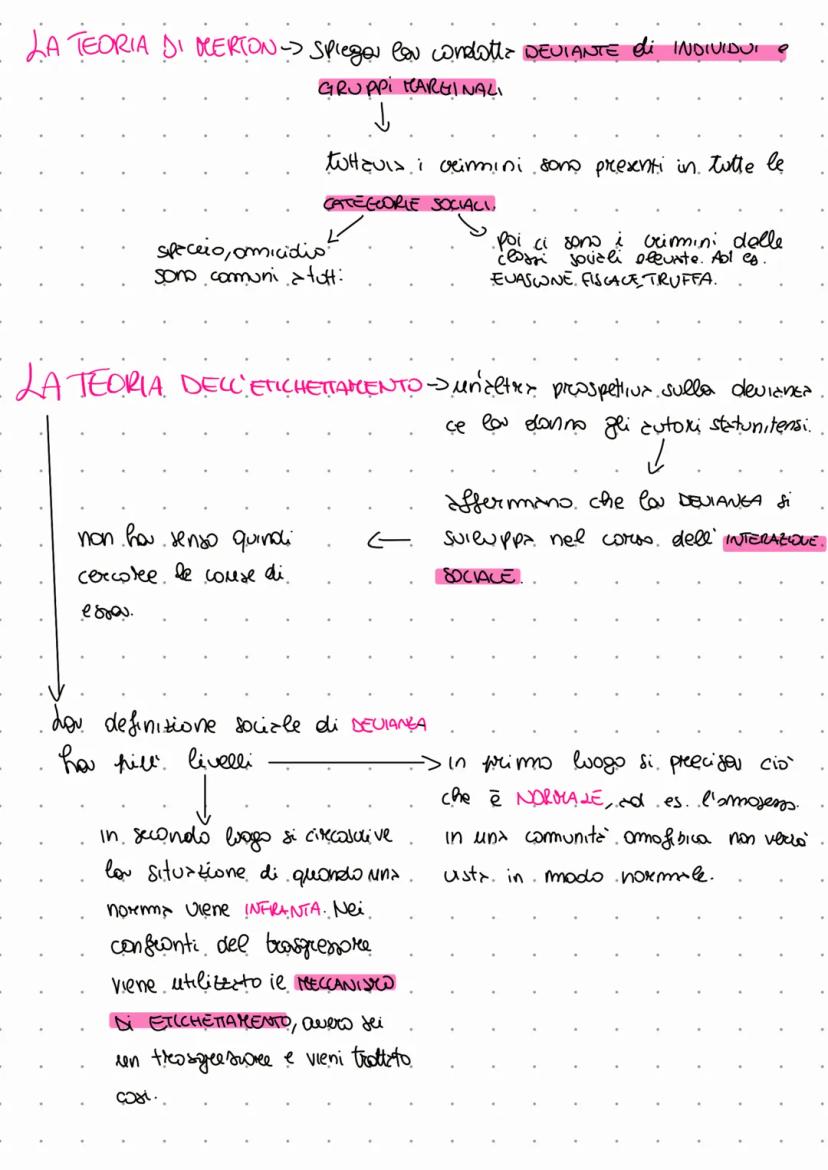 LA TEORIA DI MERTON -> spiega la condotta DEVIANTE di INDIVIDUI e
GRUPPI MARGINALI
tuttavia i crimini sono presenti in tutte le
CATEGORIE SOCIALI.
spaccio, omicidio
sono comuni a tutti
poi ci sono i crimini delle
classi sociali elevate. Ad es.
EVASIONE FISCALE, TRUFFA.
LA TEORIA DELL'ETICHETTAMENTO -> un'altra prospettiva sulla devianza
ce la danno gli autori statunitensi.
affermano che la DEVIANZA si
sviluppa nel corso dell'INTERAZIONE
SOCIALE.
non ha senso quindi
cercare le cause di
essa.
La definizione sociale di DEVIANZA
ha più livelli
in primo luogo si precisa ciò
che è NORMALE, ad es. l'omosess.
in una comunità omofobica non verrà
vista in modo normale.
in secondo luogo si circoscrive
la situazione di quando una
norma viene INFRANTA. Nei
confronti del trasgressore
viene utilizzato il MECCANISMO
DI ETICHETTAMENTO, ovvero sei
un trasgressore e vieni trattato
così.